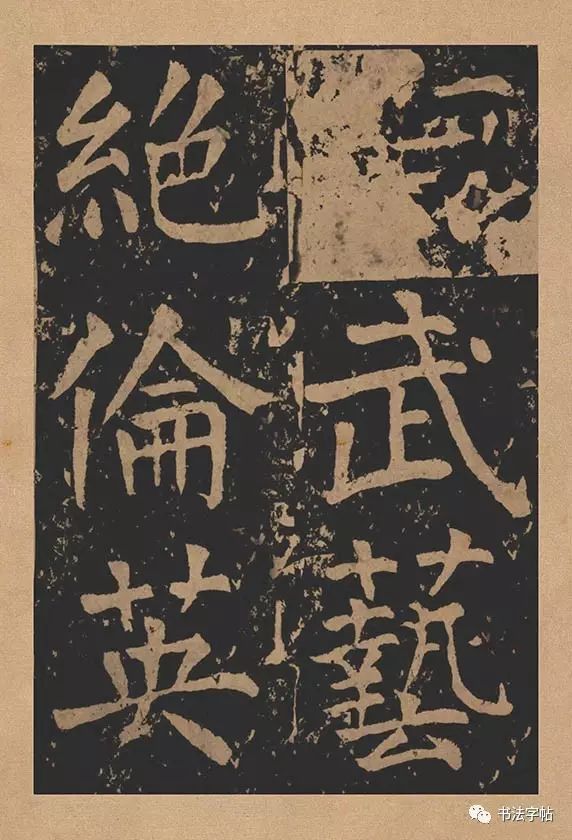 武藝
絶倫英
书法字帖